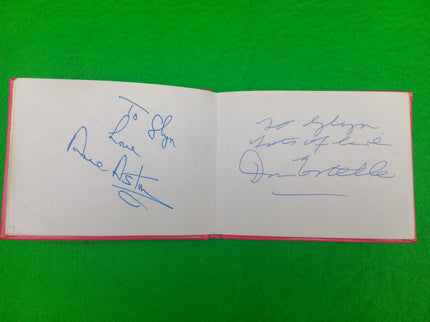 To Glyn
Love
Anne Aston
To Glyn
Lots of love
Don Estelle